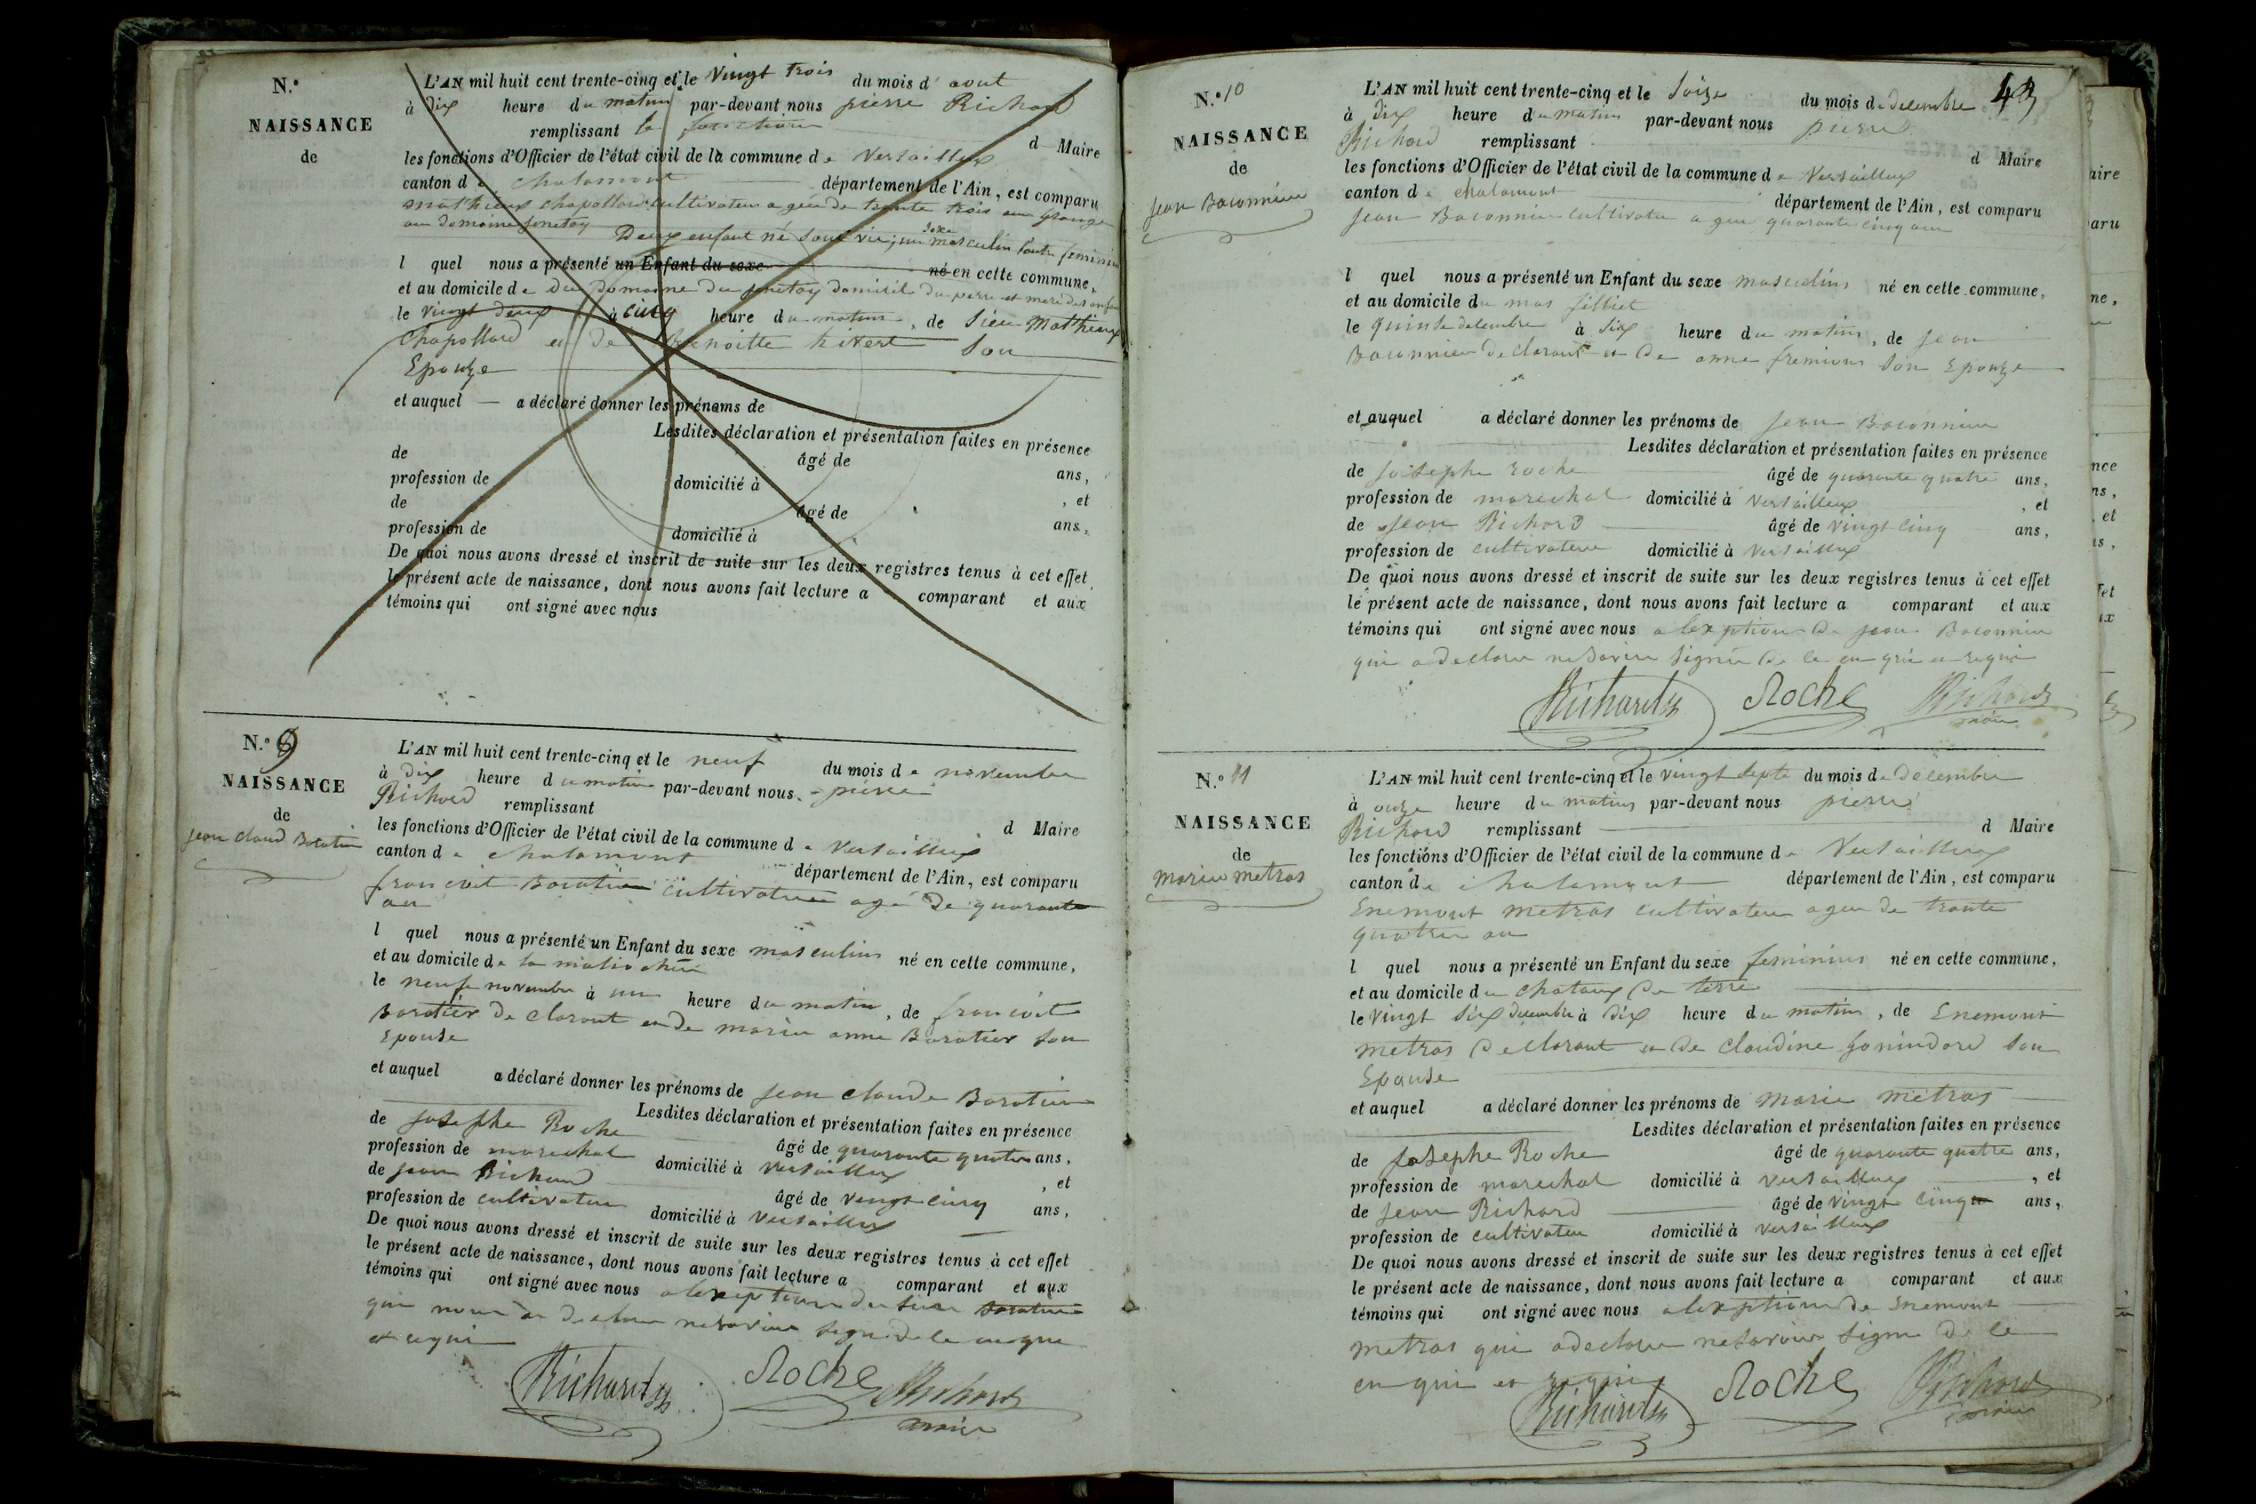 N.º
NAISSANCE
de
L'AN mil huit cent trente-cinq et le Vingt trois du mois d' aout
à dix heure du matin par-devant nous pierre Richard
remplissant les fonction
d Maire
les fonctions d'Officier de l'état civil de la commune de Versailleux
canton de chalamont département de l'Ain, est comparu
mathieux chapolloud cultivateur agee de trante trois an Granger
au domaine
Deux enfant né sans vie; un sexe masculin l'autre feminin
l quel nous a présenté un Enfant du sexe né en cette commune,
et au domicile de du domaine du domicile du pere et mere des enfant
le vingt deux à cinq heure du matin, de Sieu Mathieux
Chapolloud et de Benoitte Son
Epouze
et auquel — a déclaré donner les prénoms de
Lesdites déclaration et présentation faites en présence
de âgé de ans,
profession de domicilié à , et
de âgé de ans,
profession de domicilié à
De quoi nous avons dressé et inscrit de suite sur les deux registres tenus à cet effet
le présent acte de naissance, dont nous avons fait lecture a comparant et aux
témoins qui ont signé avec nous
N.º 9
NAISSANCE
de
jean claud Boratier
L'AN mil huit cent trente-cinq et le neuf du mois de novembre
à dix heure du matin par-devant nous pierre
Richard remplissant
d Maire
les fonctions d'Officier de l'état civil de la commune de Versailleux
canton de chalamont département de l'Ain, est comparu
francoit Boratier cultivateur agé de quarante
an
l quel nous a présenté un Enfant du sexe masculin né en cette commune,
et au domicile de la
le neufe novembre à une heure du matin, de francoit
Boratier declarant et de marie anne Boratier son
Epouse
et auquel a déclaré donner les prénoms de jean claude Boratier
Lesdites déclaration et présentation faites en présence
de Josephe Roche âgé de quarante quatre ans,
profession de marechal domicilié à Versailleux , et
de jean Richard âgé de vingt cinq ans,
profession de cultivateur domicilié à Versailleux
De quoi nous avons dressé et inscrit de suite sur les deux registres tenus à cet effet
le présent acte de naissance, dont nous avons fait lecture a comparant et aux
témoins qui ont signé avec nous a lexception du sieur Boratier
qui nous a declare ne savoir signé de ce enque
et requi
Richard Roche Richard
maire
43
N.º 10
NAISSANCE
de
jean Baconnier
L'AN mil huit cent trente-cinq et le Seize du mois de decembre
à dix heure du matin par-devant nous pierre
Richard remplissant
d Maire
les fonctions d'Officier de l'état civil de la commune de Versailleux
canton de chalamont département de l'Ain, est comparu
Jean Baconnier cultivateur a gee quarante cinq an
l quel nous a présenté un Enfant du sexe masculin né en cette commune,
et au domicile du mas filliet
le quinse decembre à six heure du matin, de jean
Baconnier declarant et de anne fremion son Epouze
et auquel a déclaré donner les prénoms de jean Baconnier
Lesdites déclaration et présentation faites en présence
de Josephe roche âgé de quarante quatre ans,
profession de marechal domicilié à Versailleux , et
de jean Richard âgé de vingt cinq ans,
profession de cultivateur domicilié à Versailleux
De quoi nous avons dressé et inscrit de suite sur les deux registres tenus à cet effet
le présent acte de naissance, dont nous avons fait lecture a comparant et aux
témoins qui ont signé avec nous a lexption de jean Baconnier
qui a declare ne savoir signé de ce en qui et requi
Richard Roche Richard
maire
N.º 11
NAISSANCE
de
marie metras
L'AN mil huit cent trente-cinq et le vingt septe du mois de decembre
à onze heure du matin par-devant nous pierre
Richard remplissant d Maire
les fonctions d'Officier de l'état civil de la commune de Versailleux
canton de chalamont département de l'Ain, est comparu
Enemont metras cultivateur agee de trante
quatre an
l quel nous a présenté un Enfant du sexe feminin né en cette commune,
et au domicile du chataux de terre
le vingt six decembre à dix heure du matin, de Enemont
metras declarant et de claudine Gonindard son
Epouse
et auquel a déclaré donner les prénoms de marie metras
Lesdites déclaration et présentation faites en présence
de Josephe Roche âgé de quarante quatre ans,
profession de marechal domicilié à versailleux , et
de jean Richard âgé de vingt cinq ans,
profession de cultivateur domicilié à versailleux
De quoi nous avons dressé et inscrit de suite sur les deux registres tenus à cet effet
le présent acte de naissance, dont nous avons fait lecture a comparant et aux
témoins qui ont signé avec nous a lexption de Enemont
metras qui a declare ne savoir signé de ce
en qui et requi
Richard Roche Richard
maire